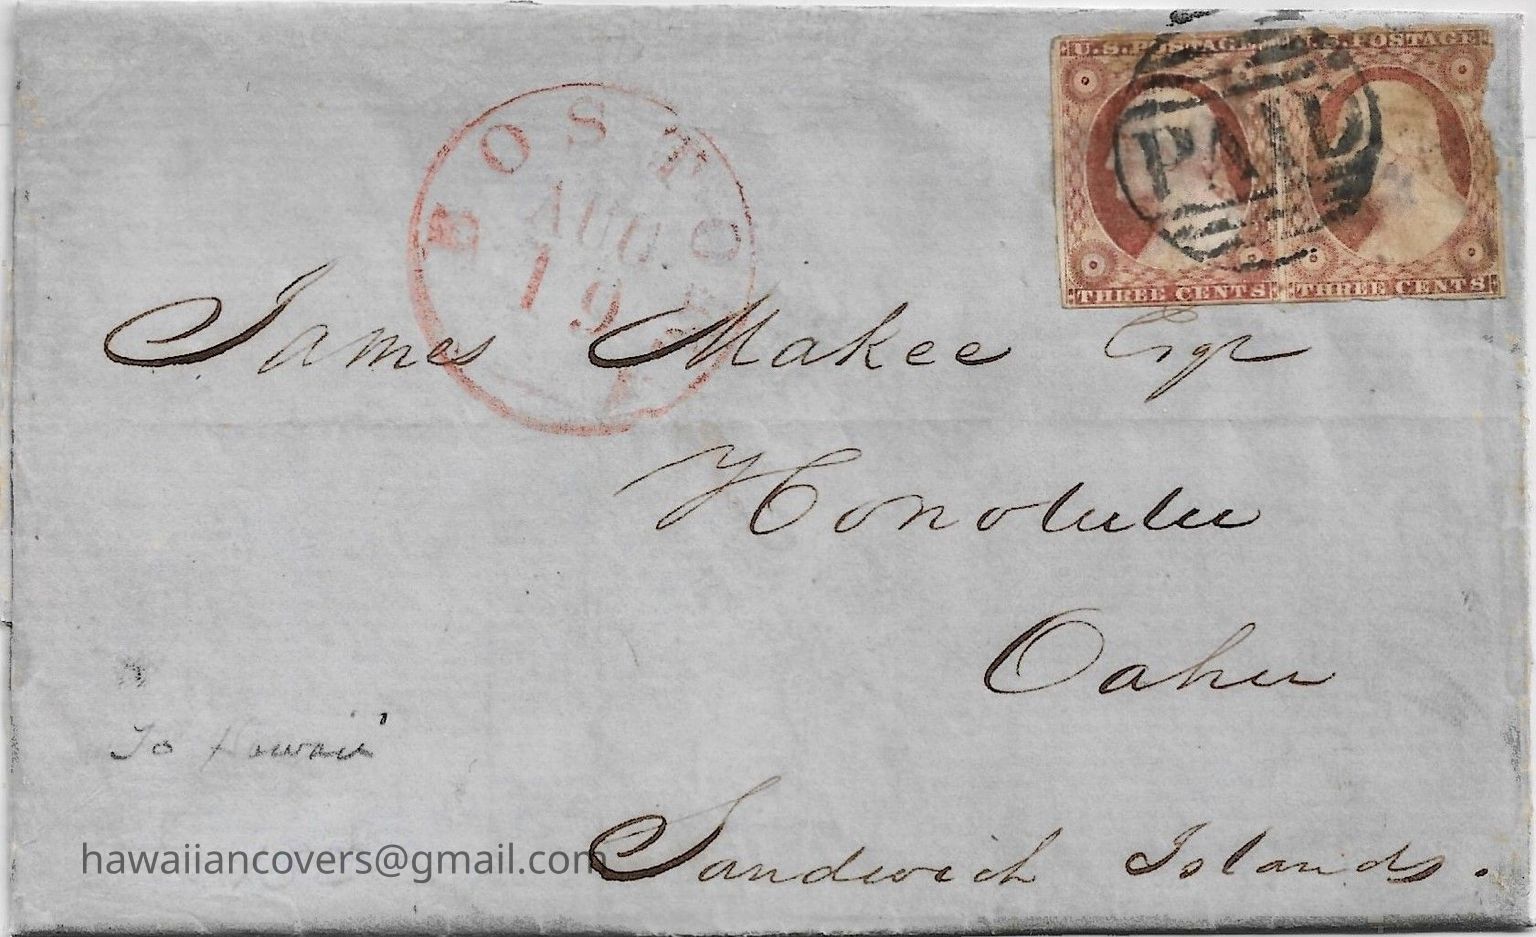 U.S. POSTAGE U.S. POSTAGE
PAID
THREE CENTS THREE CENTS
BOSTON
AUG
19
James Makee Esqr
Honolulu
Oahu
To Hawaii
Sandwich Islands.
hawaiiancovers@gmail.com